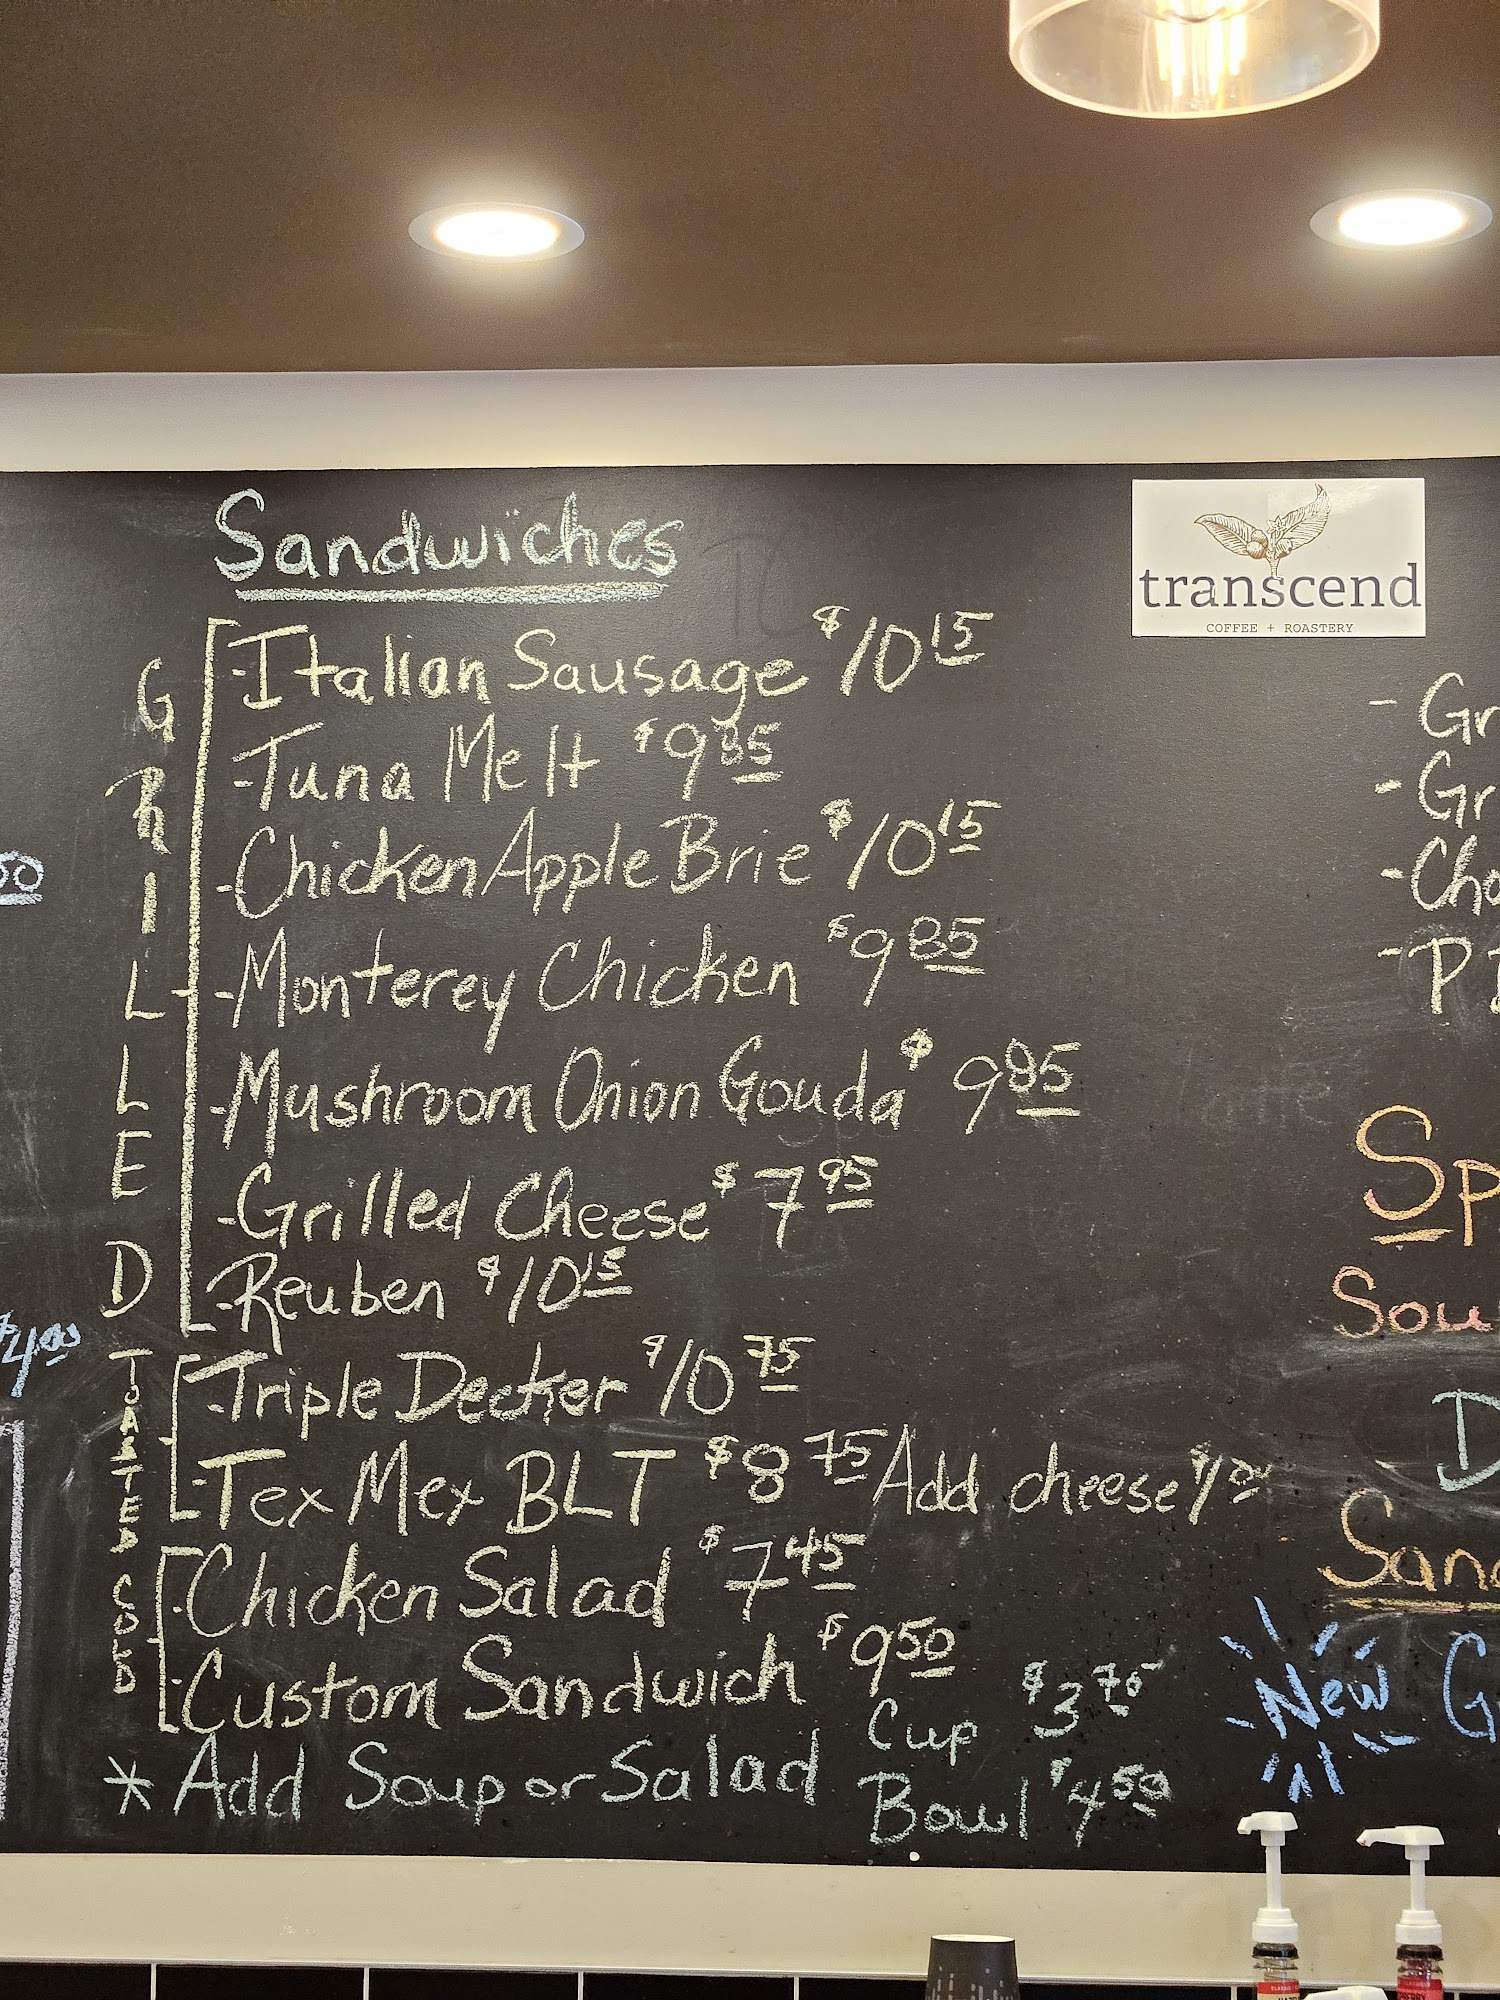 Sandwiches
transcend
COFFEE + ROASTERY
GRILLED
-Italian Sausage $10 15
-Tuna Melt $9 85
-Chicken Apple Brie $10 15
-Monterey Chicken $9 85
-Mushroom Onion Gouda $9 85
-Grilled Cheese $7 95
-Reuben $10 15
TOASTED
-Triple Decker $10 75
-Tex Mex BLT $8 75 Add cheese $1 00
COLD
-Chicken Salad $7 45
-Custom Sandwich $9 50
* Add Soup or Salad
Cup $3 75
Bowl $4 50
50
$4 00
- Gr
- Gr
- Cho
- P
Sp
Sou
D
Sand
New G